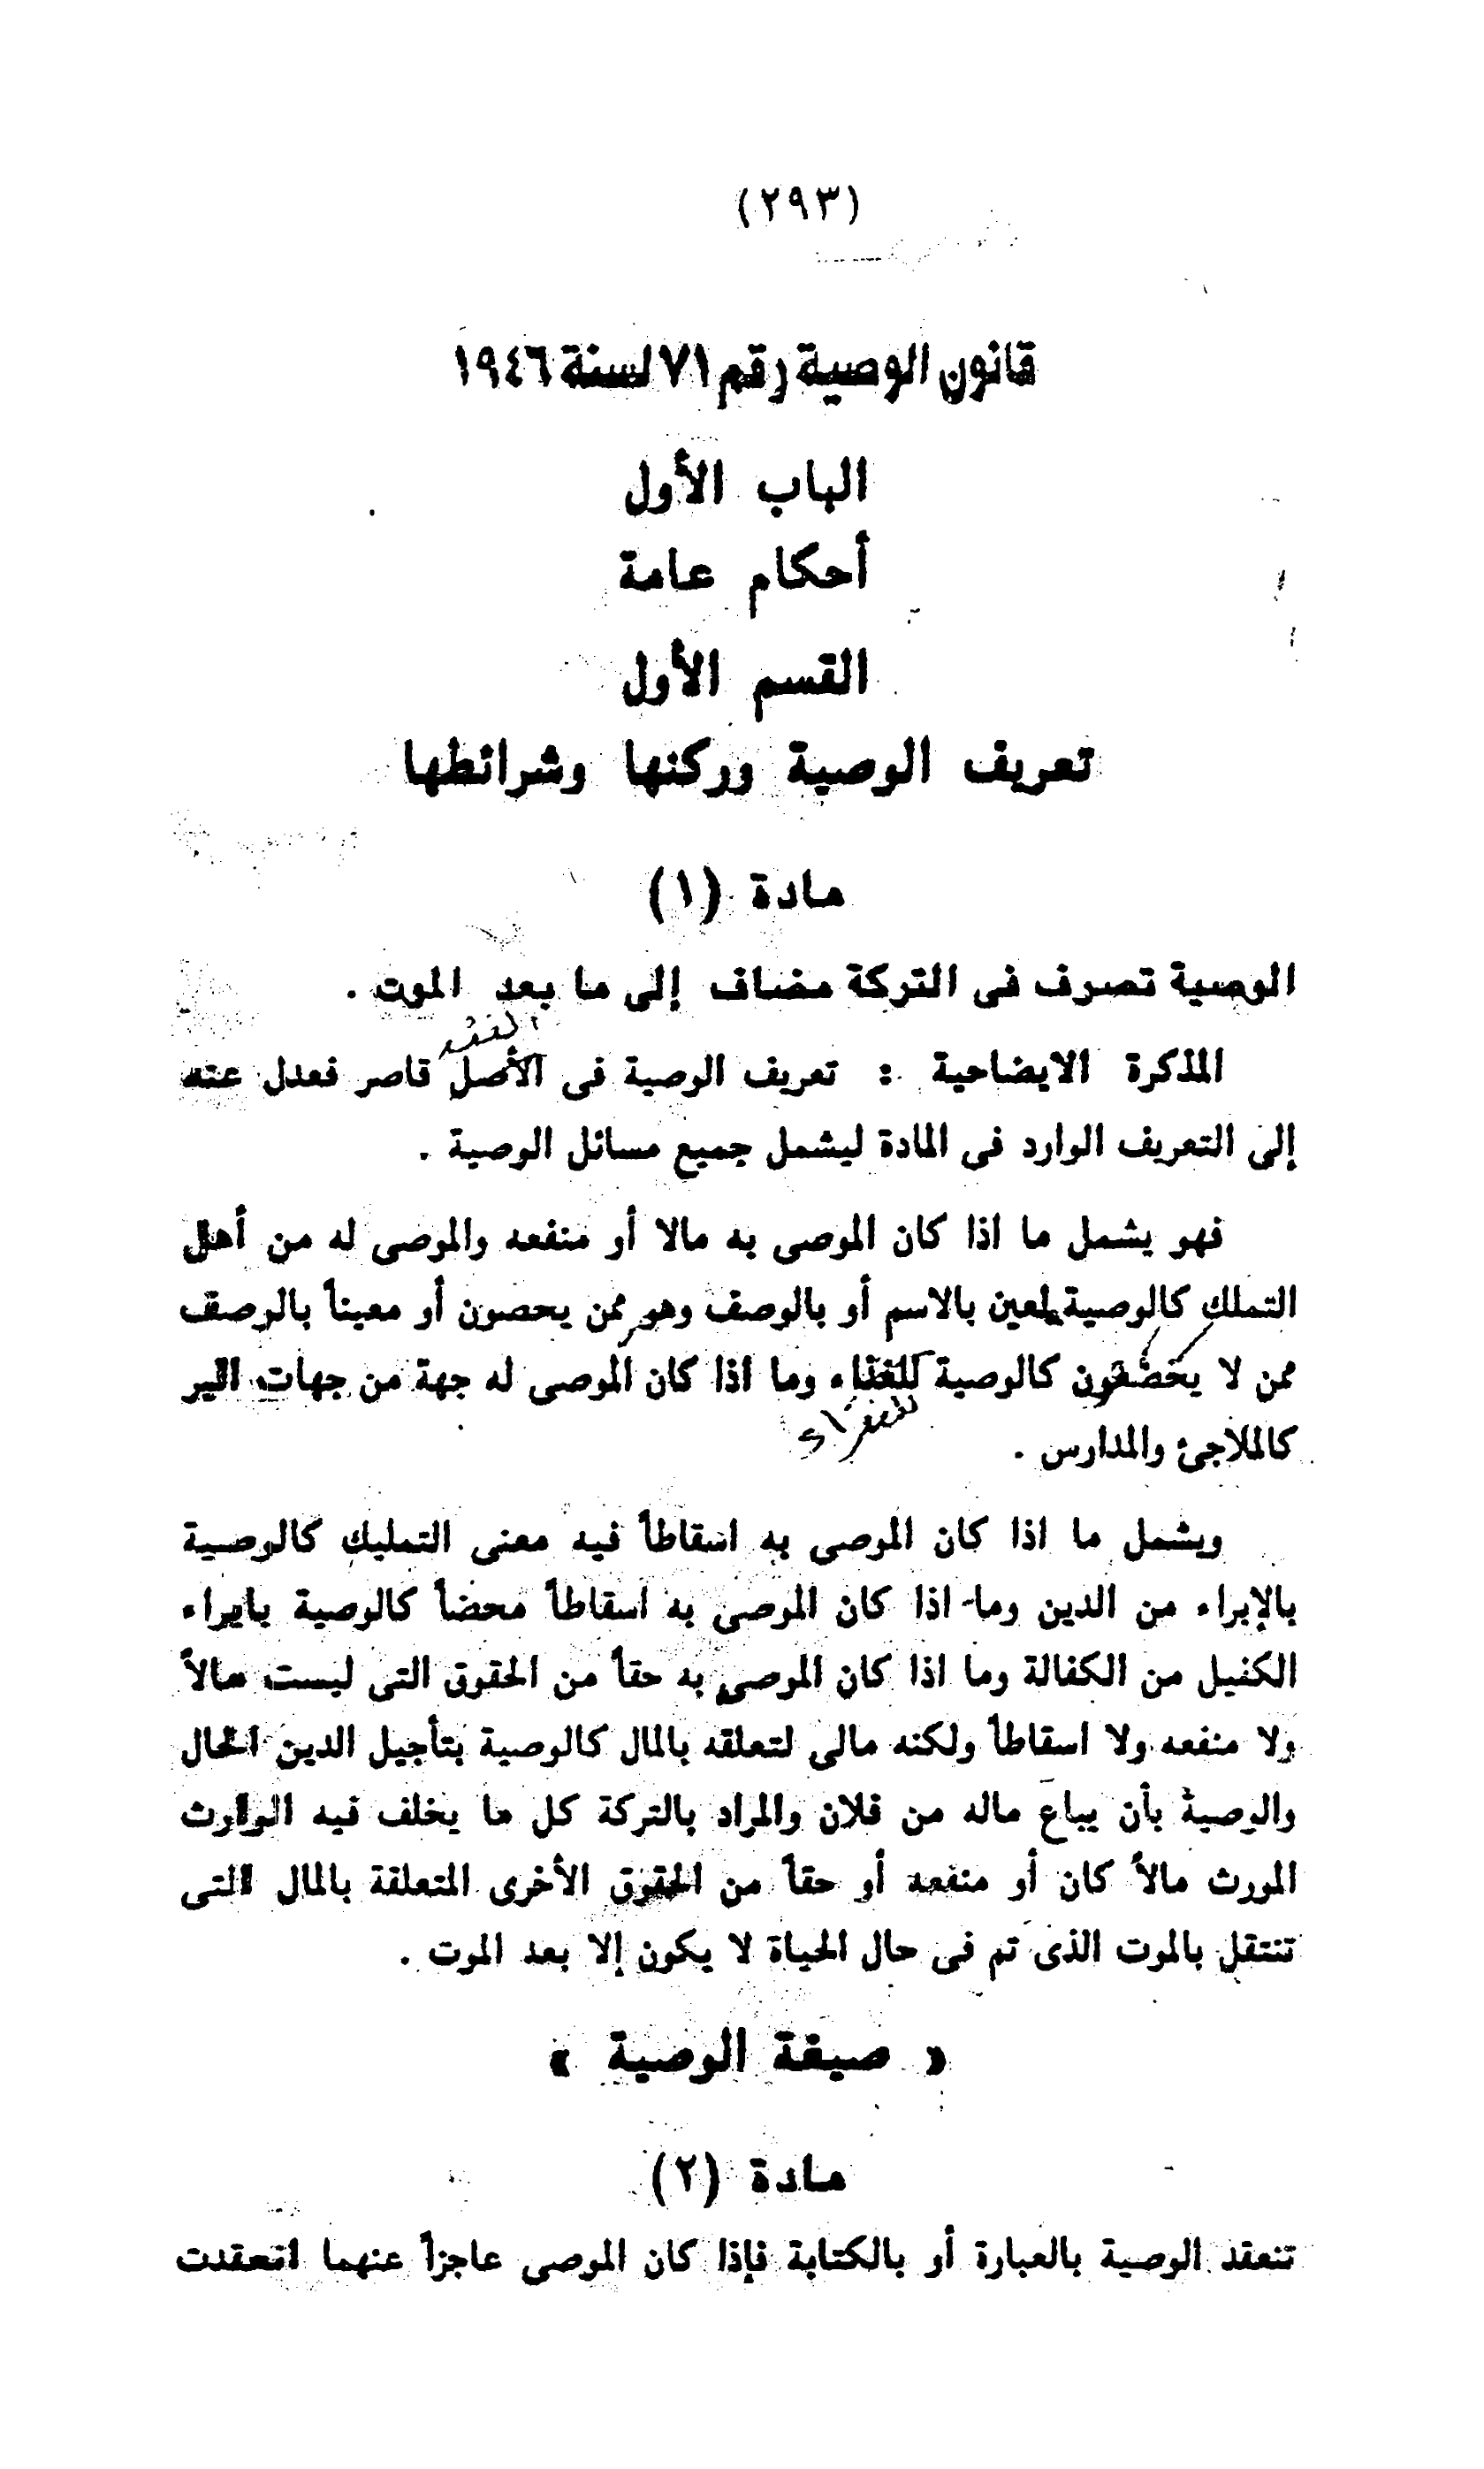 (٢٩٣)
قانون الوصية رقم ٧١ لسنة ١٩٤٦
الباب الأول
أحكام عامة
القسم الأول
تعريف الوصية وركنها وشرائطها
مادة (١)
الوصية تصرف فى التركة مضاف إلى ما بعد الموت .
المذكرة الايضاحية : تعريف الوصية فى الأصل قاصر فعدل عنه
إلى التعريف الوارد فى المادة ليشمل جميع مسائل الوصية .
فهو يشمل ما اذا كان الموصى به مالا أو منفعه والموصى له من أهل
التملك كالوصية لمعين بالاسم أو بالوصف وهو ممن يحصون أو معيناً بالوصف
ممن لا كالوصية وما اذا كان الموصى له جهة من جهات البر
للفقراء
كالملاجئ والمدارس .
ويشمل ما اذا كان الموصى به اسقاطاً فيه معنى التمليك كالوصية
بالإبراء من الدين وما اذا كان الموصى به اسقاطاً محضاً كالوصية بابراء
الكفيل من الكفالة وما اذا كان الموصى به حقاً من الحقوق التى ليست مالاً
ولا منفعه ولا اسقاطاً ولكنه مالى لتعلقه بالمال كالوصية بتأجيل الدين الحال
والوصية بأن يباع ماله من فلان والمراد بالتركة كل ما يخلف فيه الوارث
المورث مالاً كان أو منفعه أو حقاً من الحقوق الأخرى المتعلقة بالمال التى
تنتقل بالموت الذى تم فى حال الحياة لا يكون إلا بعد الموت .
« صيغة الوصية »
مادة (٢)
تنعقد الوصية بالعبارة أو بالكتابة فإذا كان الموصى عاجزاً عنهما انعقدت